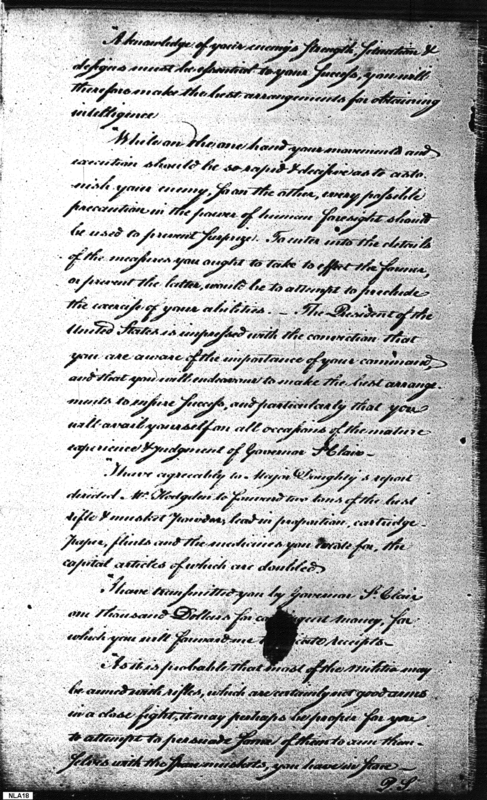 "A knowledge of your enemy's strength, situation &
designs must be essential to your success, you will
therefore make the best arrangements for obtaining
intelligence
"While on the one hand your movements and
execution should be so rapid & decisive as to asto
nish your enemy, so on the other, every possible
precaution in the power of human foresight should
be used to prevent surprize. To enter into the details
of the measures you ought to take to effect the former,
or prevent the latter, would be to attempt to preclude
the exercise of your abilities. — The President of the
United States is impressed with the conviction that
you are aware of the importance of your command,
and that you will endeavour to make the best arrange-
ments to insure success, and particularly that you
will avail yourself on all occasions of the mature
experience & judgment of Governor St Clair —
"I have agreeably to Major Doughty's report
directed Mr. Hodgdon to forward two tons of the best
rifle & musket powder, lead in proportion, cartridge
paper, flints and the medicines you wrote for, the
capital articles of which are doubled
"I have transmitted you by Governor St Clair
one thousand Dollars for contingent money, for
which you will forward me receipts —
"As it is probable that most of the Militia may
be armed with rifles, which are certainly not good arms
in a close fight, it may perhaps be proper for you
to attempt to persuade some of them to arm them-
selves with the muskets, you have in store —
P. S.
NLA18